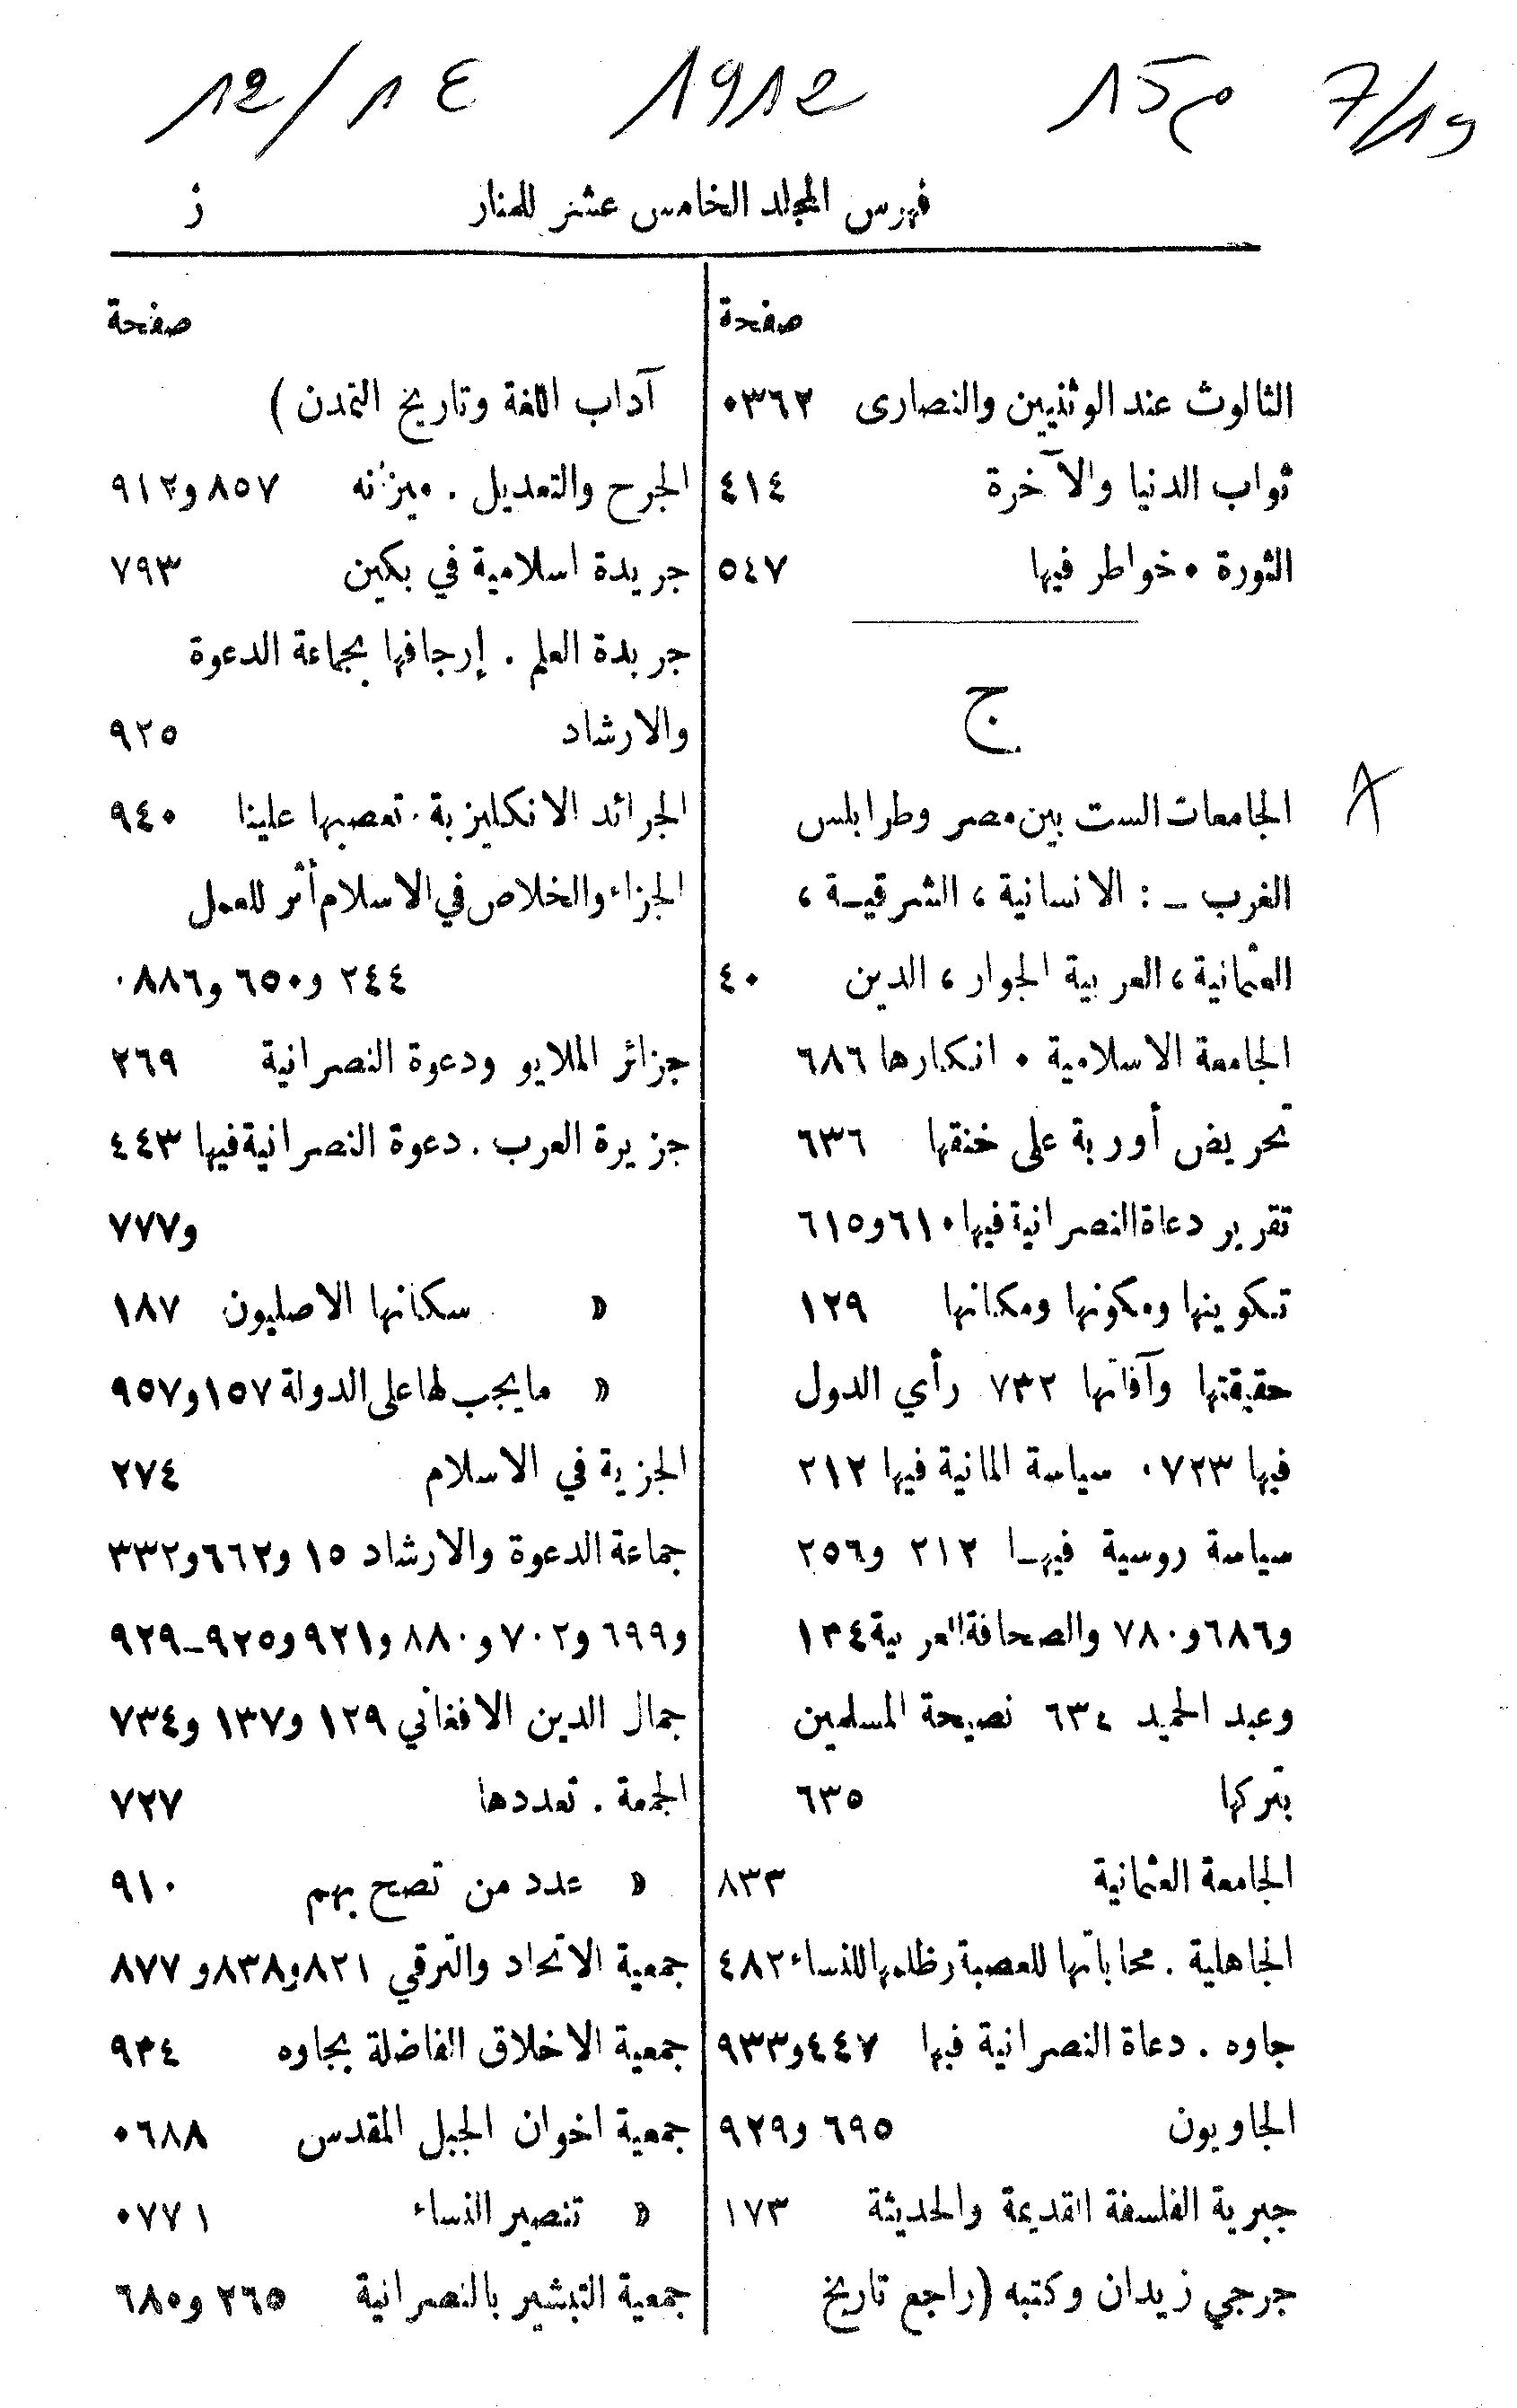 7/19 م15 1912 12/1٤
فهرس المجلد الخامس عشر للمنار ز
صفحة
الثالوث عند الوثنيين والنصارى ٣٦٢.
ثواب الدنيا والآخرة ٤١٤
الثورة . خواطر فيها ٥٤٧
ج
الجامعات الست بين مصر وطرابلس
الغرب - : الانسانية ، الشرقيـة ،
العثمانية ، العربية الجوار ، الدين ٤٠
الجامعة الاسلامية . انكارها ٦٨٦
تحريض أوربة على خنقها ٦٣٦
تقرير دعاة النصرانية فيها ٦١٠ و٦١٥
تكوينها ومكونها ومكانها ١٢٩
حقيقتها وآفاتها ٧٣٢ رأي الدول
فيها ٧٢٣. سياسة المانية فيها ٢١٢
سياسة روسية فيهـا ٢١٢ و٢٥٦
و٦٨٦ و٧٨٠ والصحافة العربية ١٣٤
وعبد الحميد ٦٣٤ نصيحة المسلمين
بتركها ٦٣٥
الجامعة العثمانية ٨٣٣
الجاهلية . محاباتها للعصبة وظلمها للنساء ٤٨٢
جاوه . دعاة النصرانية فيها ٤٤٧ و٩٣٣
الجاويون ٦٩٥ و٩٢٩
جبرية الفلسفة القديمة والحديثة ١٧٣
جرجي زيدان وكتبه (راجع تاريخ
صفحة
آداب اللغة وتاريخ التمدن )
الجرح والتعديل . ميزانه ٨٥٧ و٩١٢
جريدة اسلامية في بكين ٧٩٣
جريدة العلم . إرجافها بجماعة الدعوة
والارشاد ٩٢٥
الجرائد الانكليزية . تعصبها علينا ٩٤٠
الجزاء والخلاص في الاسلام أثر للعمل
٢٤٤ و٦٥٠ و٨٨٦.
جزائر الملايو ودعوة النصرانية ٢٦٩
جزيرة العرب . دعوة النصرانية فيها ٤٤٣
و٧٧٧
« سكانها الاصليون ١٨٧
« مايجب لها على الدولة ١٥٧ و٩٥٧
الجزية في الاسلام ٢٧٤
جماعة الدعوة والارشاد ١٥ و٦٦٢ و٣٣٢
و٦٩٩ و٧٠٢ و٨٨٠ و٩٢١ و٩٢٥-٩٢٩
جمال الدين الافغاني ١٢٩ و١٣٧ و٧٣٤
الجمعة . تعددها ٧٢٧
« عدد من تصح بهم ٩١٠
جمعية الاتحاد والترقي ٨٢١ و٨٣٨ و٨٧٧
جمعية الاخلاق الفاضلة بجاوه ٩٣٤
جمعية اخوان الجبل المقدس ٦٨٨.
« تنصير النساء ٧٧١.
جمعية التبشير بالنصرانية ٢٦٥ و٦٨٠